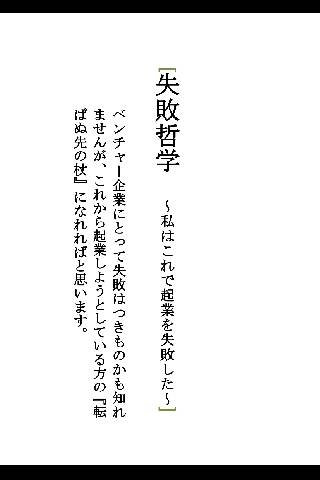 ［失敗哲学　～私はこれで起業を失敗した～］
ベンチャー企業にとって失敗はつきものかも知れ
ませんが、これから起業しようとしている方の『転
ばぬ先の杖』になれればと思います。